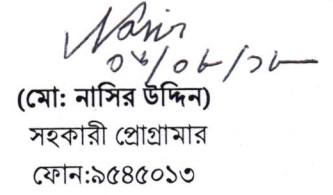 Nasir
(মো: নাসির উদ্দিন)
সহকারী প্রোগ্রামার
ফোন:৯৫৪৫০১৩